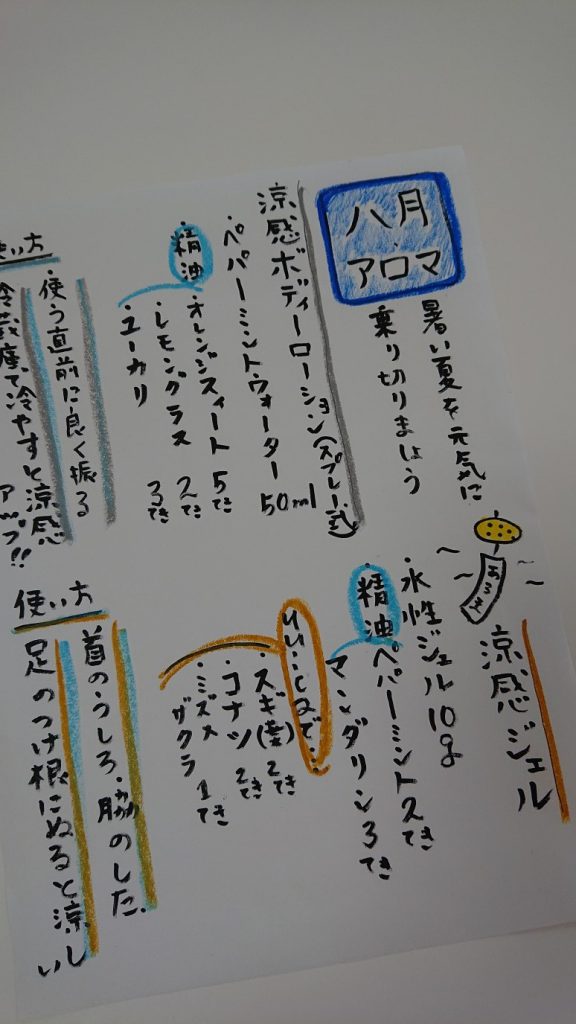 八月
アロマ
暑い夏を元気に
乗り切りましょう
涼感ボディーローション(スプレー式)
・ペパーミントウォーター 50ml
・精油
・オレンジスィート 5てき
・レモングラス 2てき
・ユーカリ 3てき
使い方
・使う直前に良く振る
冷蔵庫で冷やすと涼感
アップ!!
涼感ジェル
・水性ジェル10g
・精油 ペパーミント2てき
マンダリン3てき
・スギ(葉)2てき
・コナツ 2てき
・ミズメザクラ 1てき
使い方
首のうしろ・脇のした、
足のつけ根にぬると涼しい